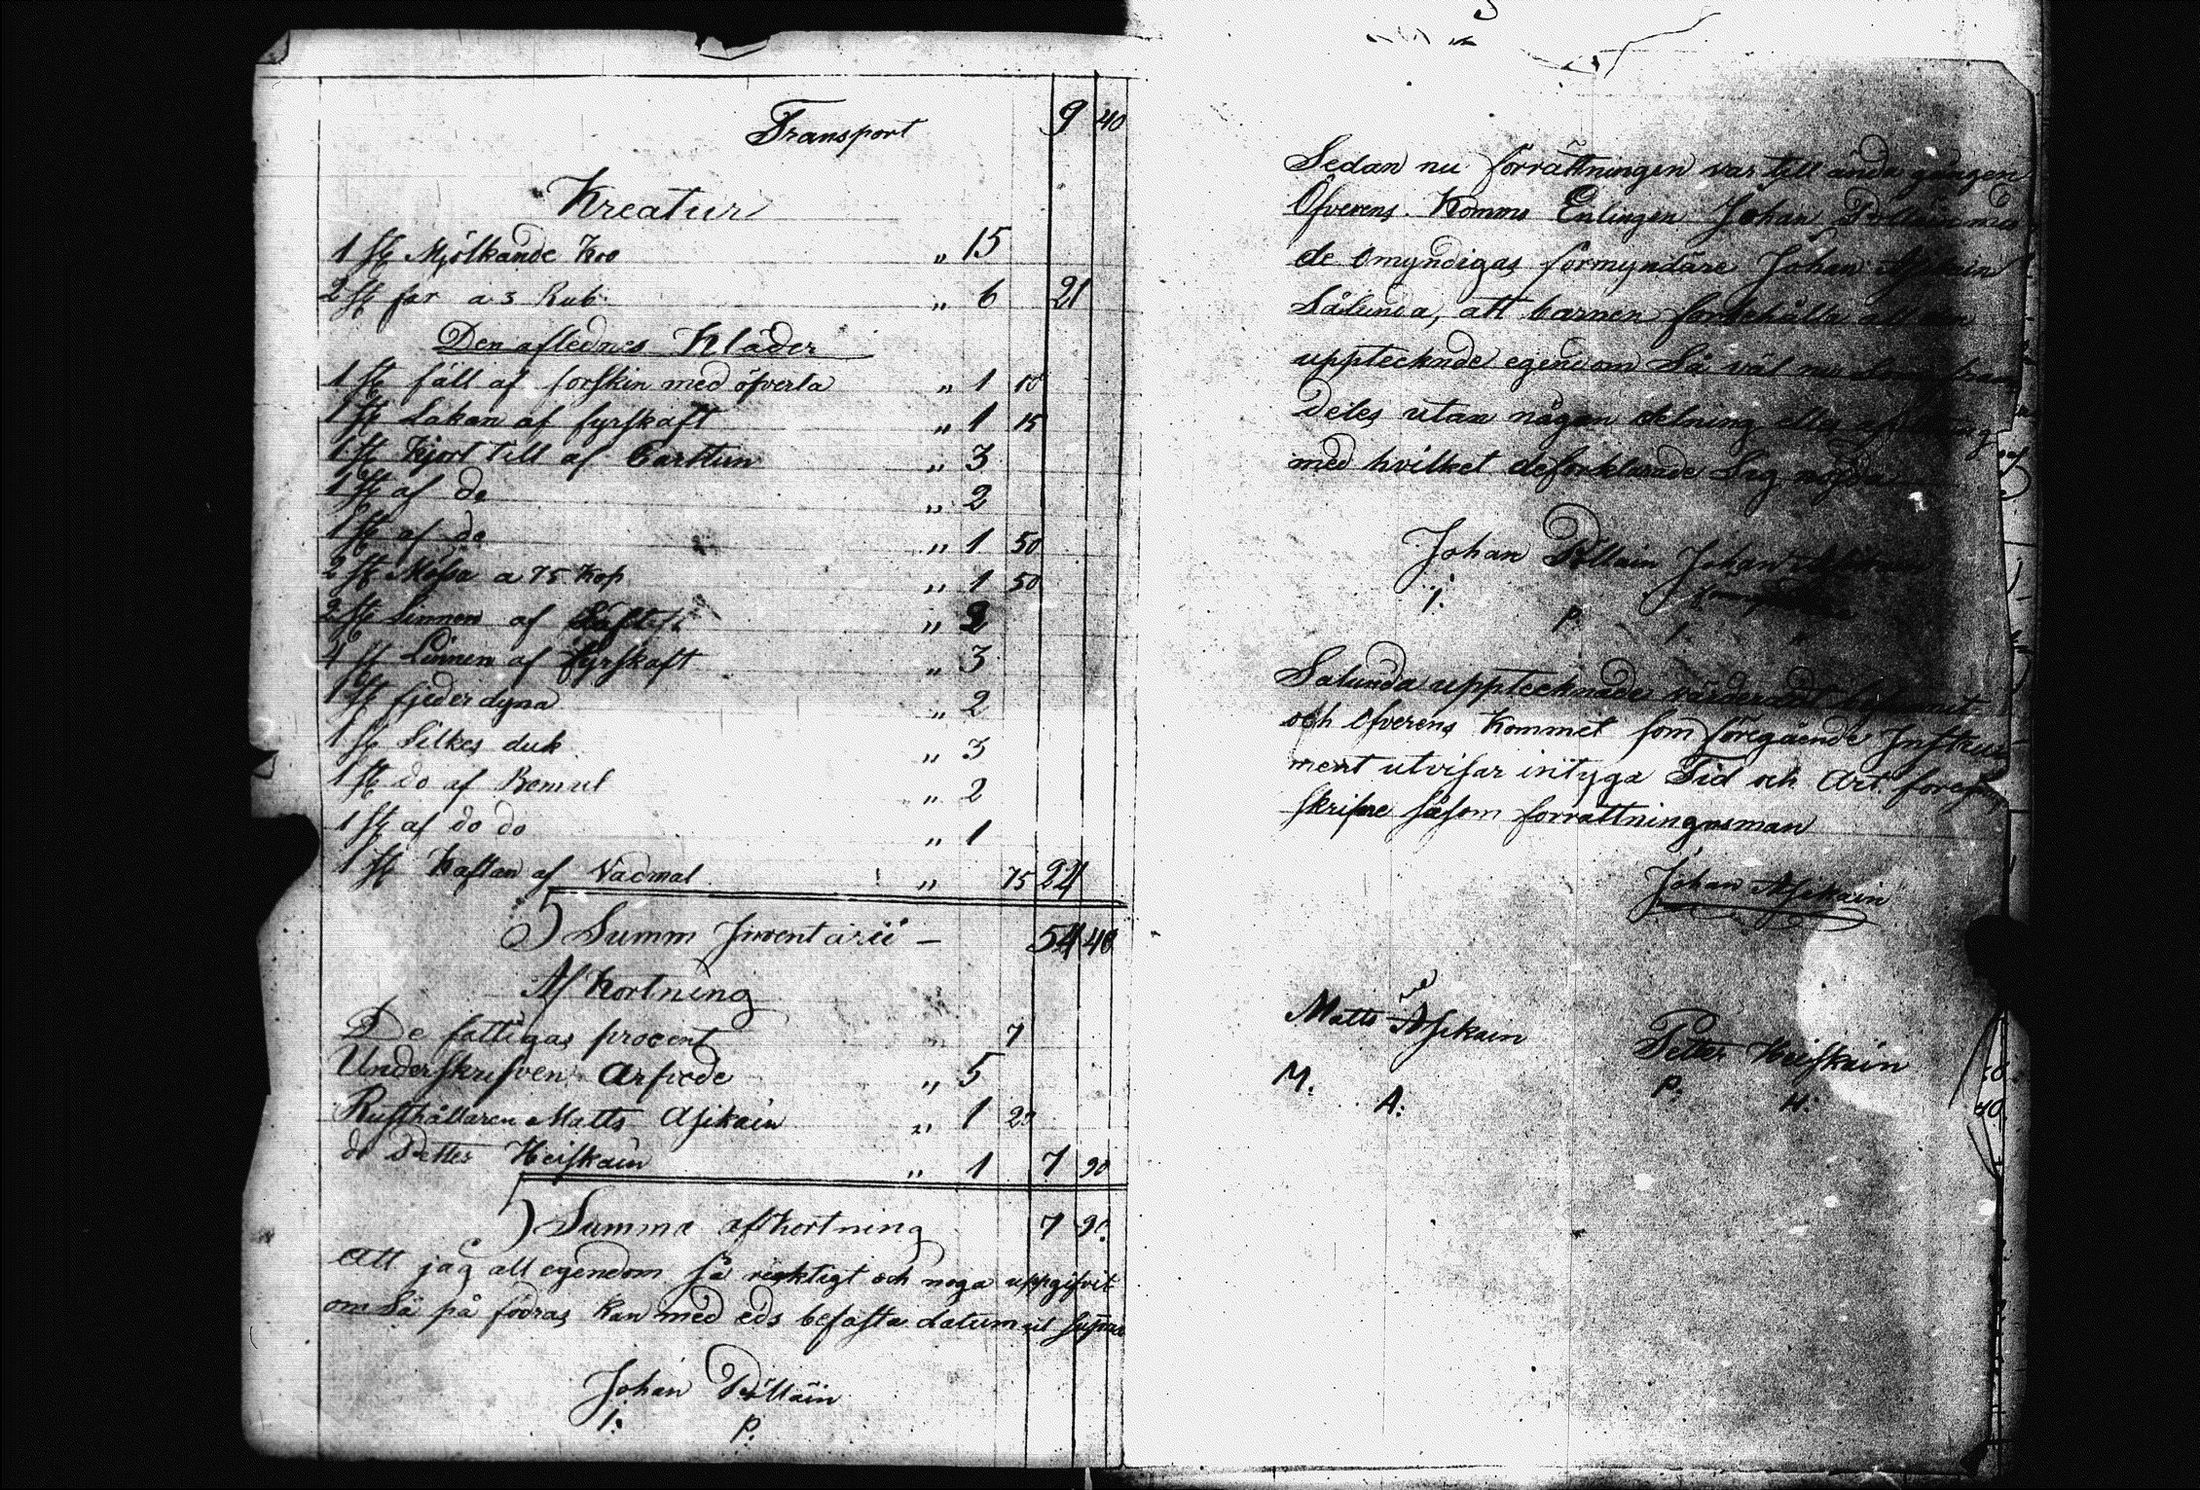 Transport 9 40
Kreatur
1 st Mjölkande Koo " 15
2 st får a 3 Rub. " 6 21
Den aflednes Kläder
1 st fäll af forskin med öfverla " 1 10
1 st Lakan af fyrskaft " 1 15
1 st Kjort till af Carttun " 3
1 st af do " 2
1 st af do " 1 50
2 st Mössa a 75 Kop " 1 50
2 st Linnen af " 2
4 st Linnen af fyrskaft " 3
1 st fjederdyna " 2
1 st Silkes duk " 3
1 st do af Bomul " 2
1 st af do do " 1
1 st Kaftan af Vadmal " 75 24
Summ Inventarii — 54 40
Af Kortning
De fattigas procent 7
Underskrifven Arfvode " 5
Rusthållaren Matts Asikain " 1 20
do Petter Heiskain " 1 7 90
Summa afkortning 7 90
Att jag all egendom så ricktigt och noga uppgifvit
om så på fodras kan med eds befästa datum ut supra
Johan Pölläin
I. P.
Sedan nu förrättningen var till ända gången
Öfverens Komms Enlingen Johan Pöllain med
de omyndigas förmyndare Johan Asikain
Sålunda, att barnen forbehålla all
upptecknde egendom Så väl nu
deles utan någon delning eller
med hvilket deforklarade Sig nöjda
Johan Pöllain Johan Asikain
I. P. I.
Sålunda upptecknade värderadt
och Öfverens Kommet som föregående Instru-
ment utvisar intyga Tid och Art. fore
skrifne såsom forrattningsman
Johan Asikain
Matts Asikain Petter Heiskain
M. A. P. H.